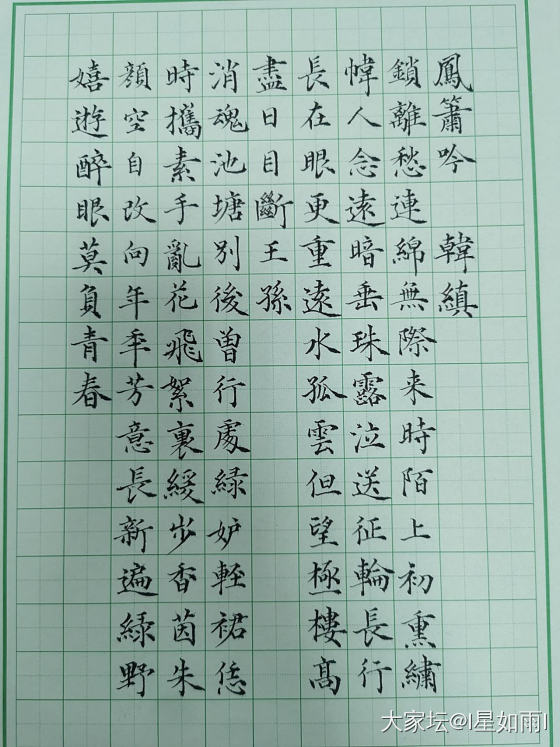 鳳簫吟 韓縝
鎖離愁連綿無際来時陌上初熏繡
幃人念遠暗垂珠露泣送征輪長行
長在眼更重遠水孤雲但望極樓高
盡日目斷王孫
消魂池塘別後曽行處緑妒軽裙恁
時攜素手亂花飛絮裏緩步香茵朱
顏空自改向年年芳意長新遍緑野
嬉遊醉眼莫負青春
大家坛@I星如雨I